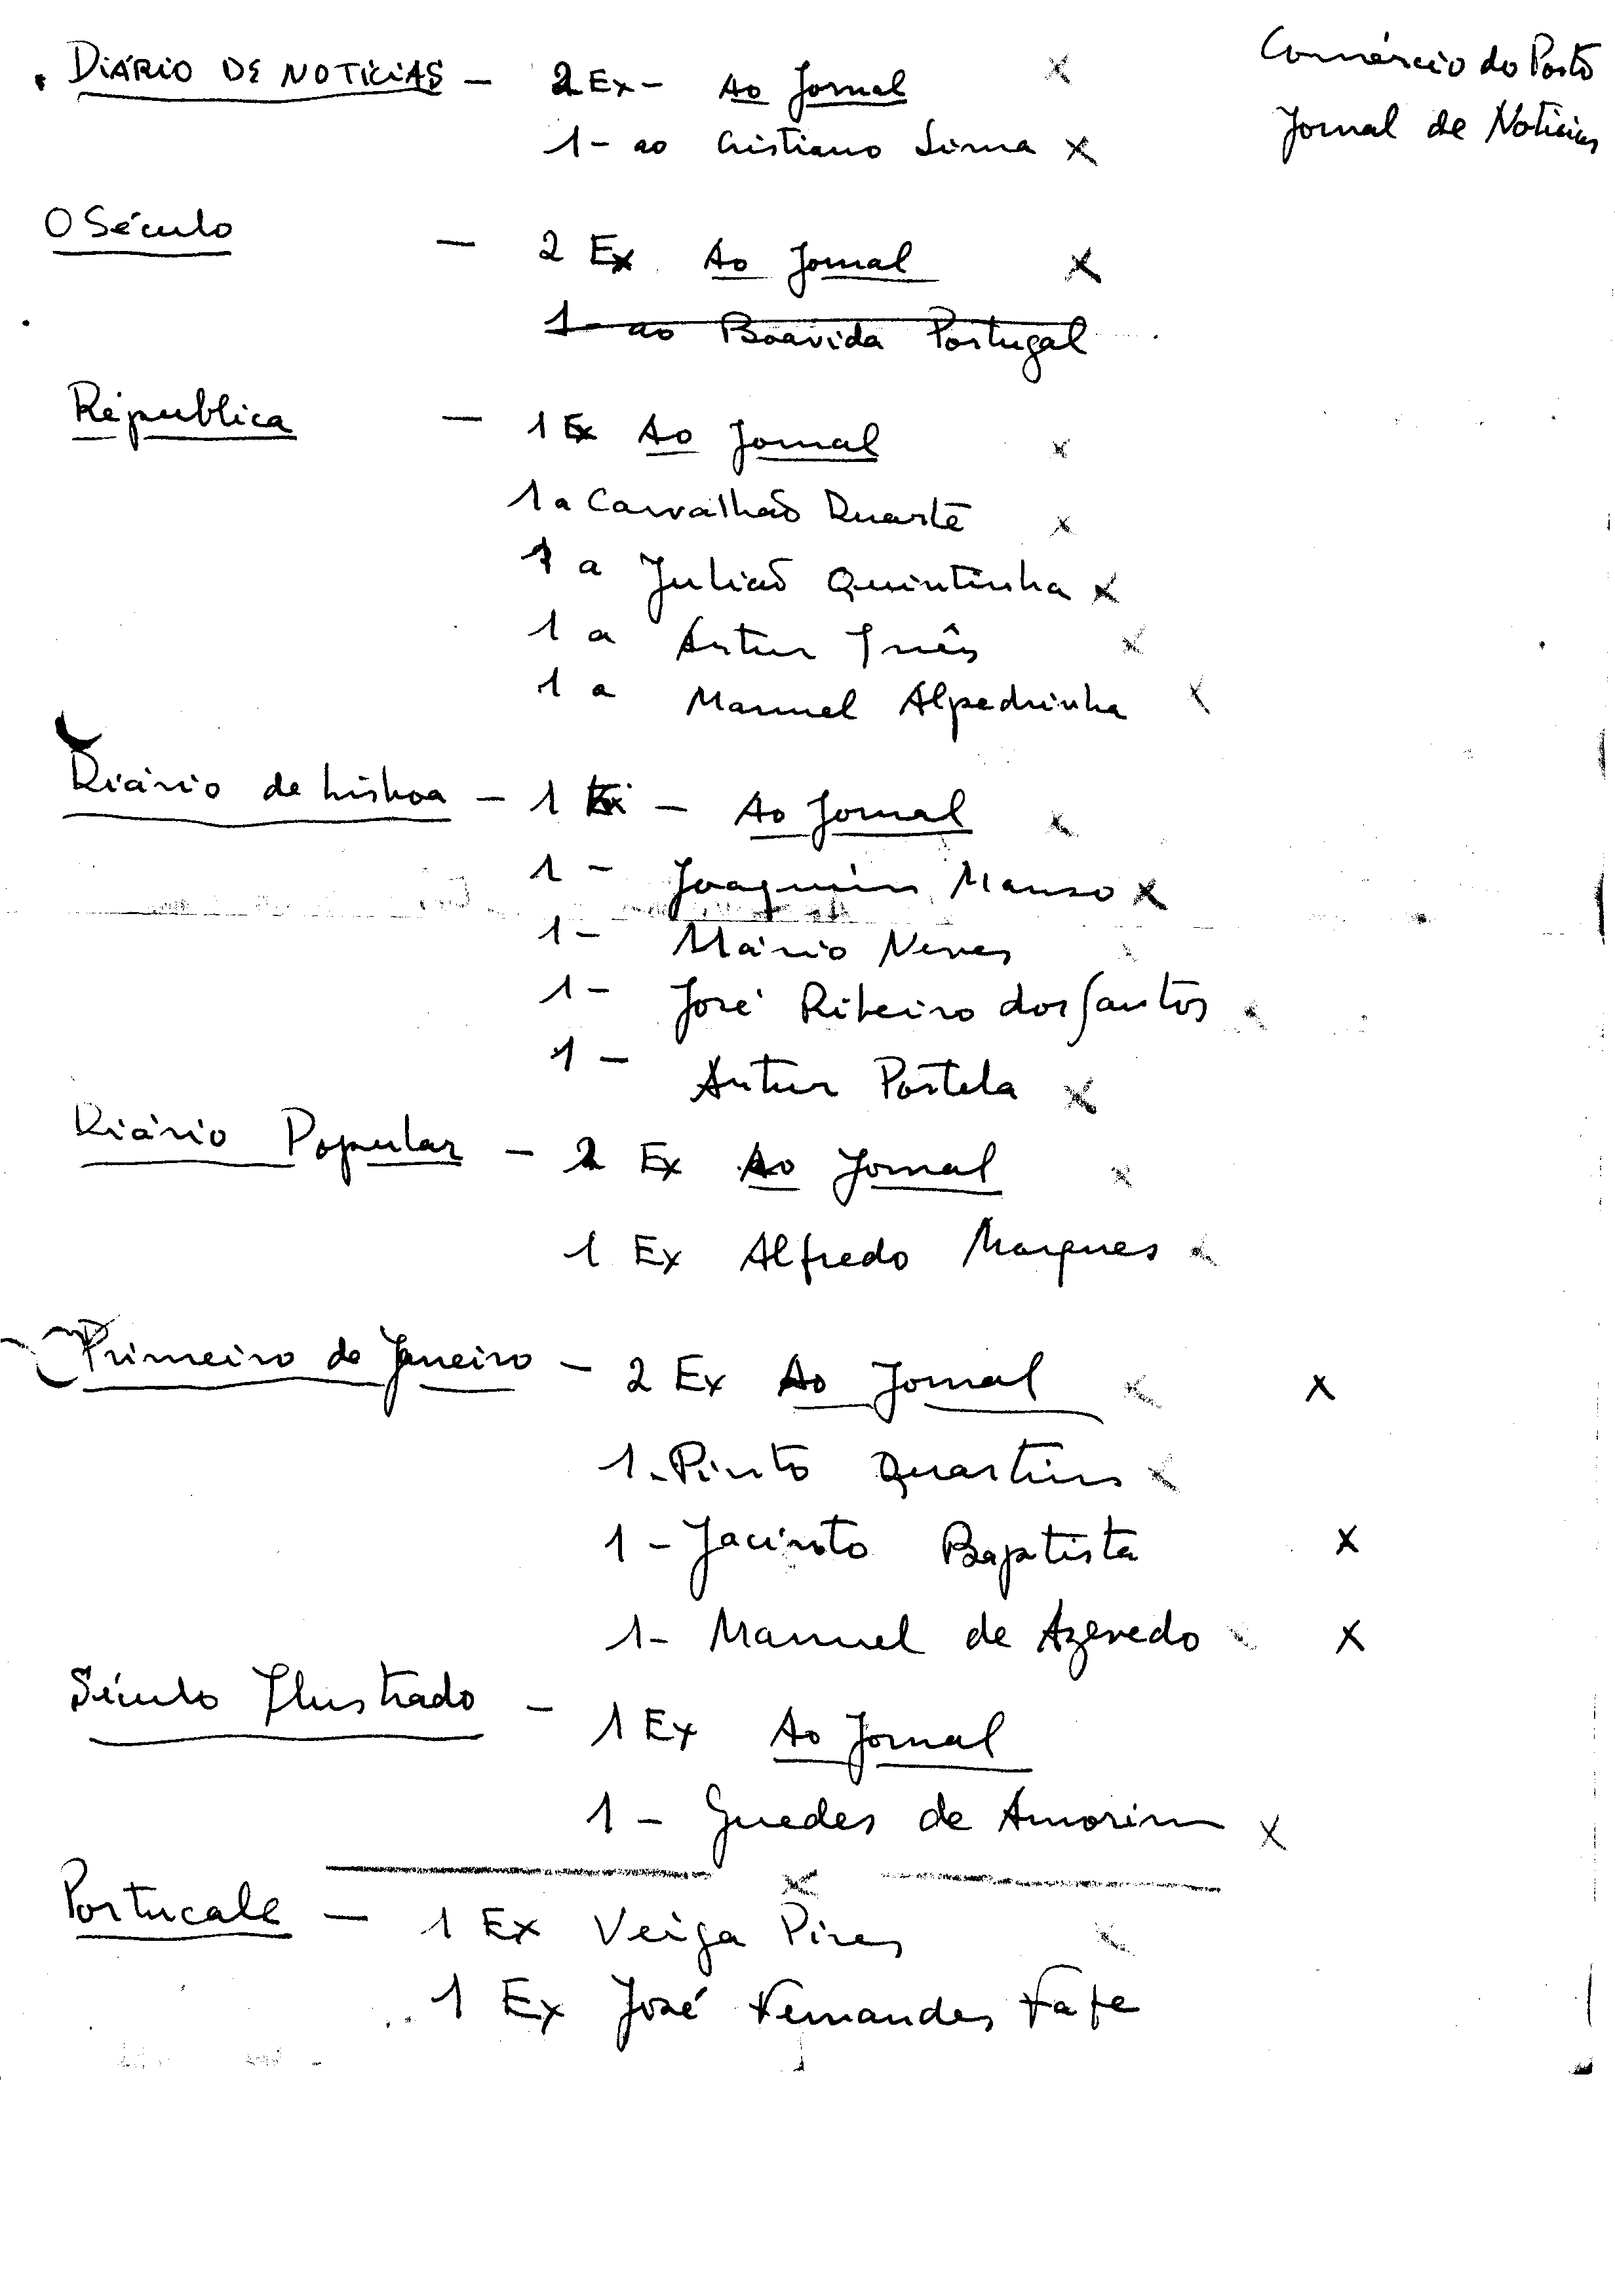 DIÁRIO DE NOTÍCIAS - 2 Ex - Ao Jornal x
1 - ao Cristiano Lima x
Comércio do Porto
Jornal de Notícias
O Século - 2 Ex Ao Jornal x
1 - ao Boavida Portugal
República - 1 Ex Ao Jornal x
1 a Carvalhão Duarte x
1 a Julião Quintinha x
1 a Artur Inês x
1 a Manuel Alpedrinha x
Diário de Lisboa - 1 Ex - Ao Jornal x
1 - Joaquim Manso x
1 - Mário Neves x
1 - José Ribeiro dos Santos x
1 - Artur Portela x
Diário Popular - 2 Ex Ao Jornal x
1 Ex Alfredo Marques x
Primeiro de Janeiro - 2 Ex Ao Jornal x x
1 - Pinto Quartim x
1 - Jacinto Baptista x
1 - Manuel de Azevedo x x
Século Ilustrado - 1 Ex Ao Jornal
1 - Guedes de Amorim x
x
Portucale - 1 Ex Veiga Pires x
1 Ex José Fernandes Fafe